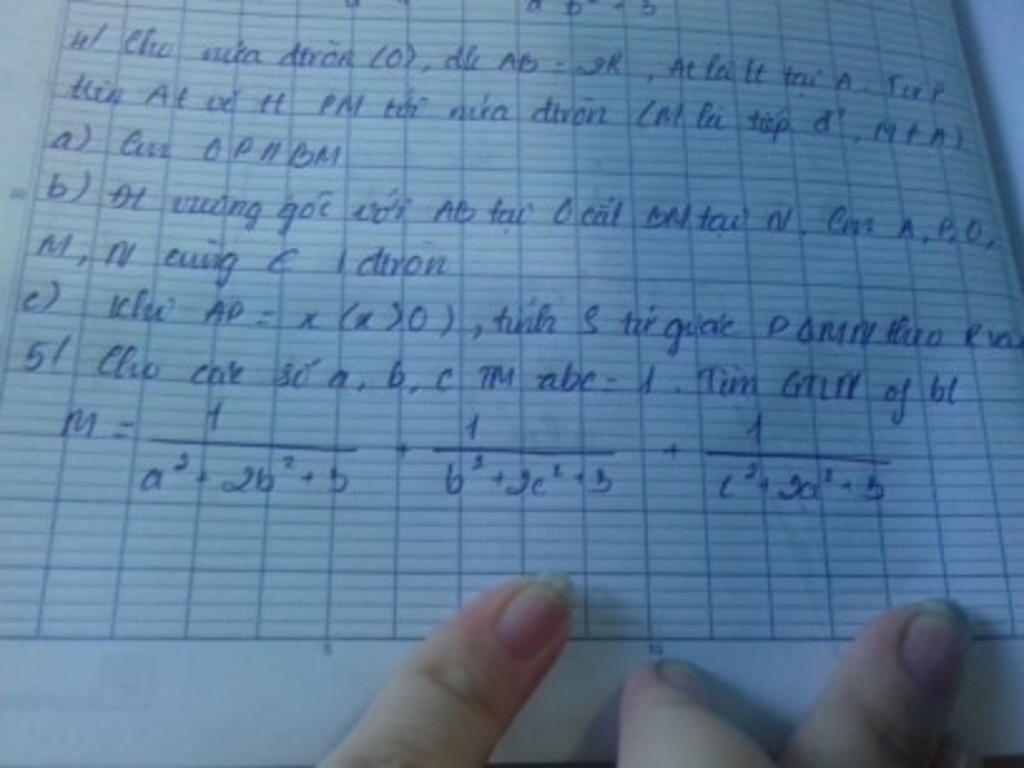 a b² + 3
4/ Cho nửa đtròn (O), đk AB = 2R, At là tt tại A. Từ P
trên At vẽ tt PM tới nửa đtròn (M là tiếp đ', M ≠ A)
a) Cm OP // BM
b) Đt vuông góc với AB tại O cắt BM tại N. Cm A, P, O,
M, N cùng ∈ 1 đtròn
c) Khi AP = x (x > 0), tính S tứ giác POMN theo R và
5/ Cho các số a, b, c TM abc = 1. Tìm GTLN of bt
M = 1 / (a² + 2b² + 3) + 1 / (b² + 2c² + 3) + 1 / (c² + 2a² + 3)